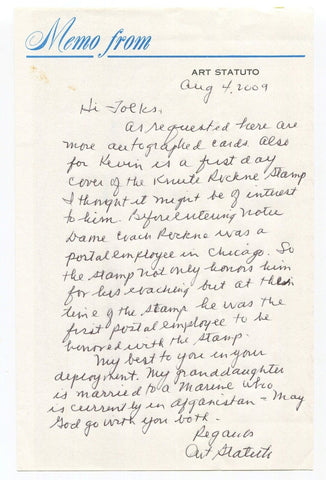 Memo from
ART STATUTO
Aug 4, 2009
Hi Folks,
As requested here are
more autographed cards. Also
for Kevin is a first day
cover of the Knute Rockne Stamp
I thought it might be of interest
to him. Before entering Notre
Dame Coach Rockne was a
postal employee in Chicago. So
the stamp not only honors him
for his coaching but at the
time of the stamp he was the
first postal employee to be
honored with the stamp.
My best to you in your
deployment. My granddaughter
is married to a Marine who
is currently in Afganistan - May
God go with you both.
Regards
Art Statuto